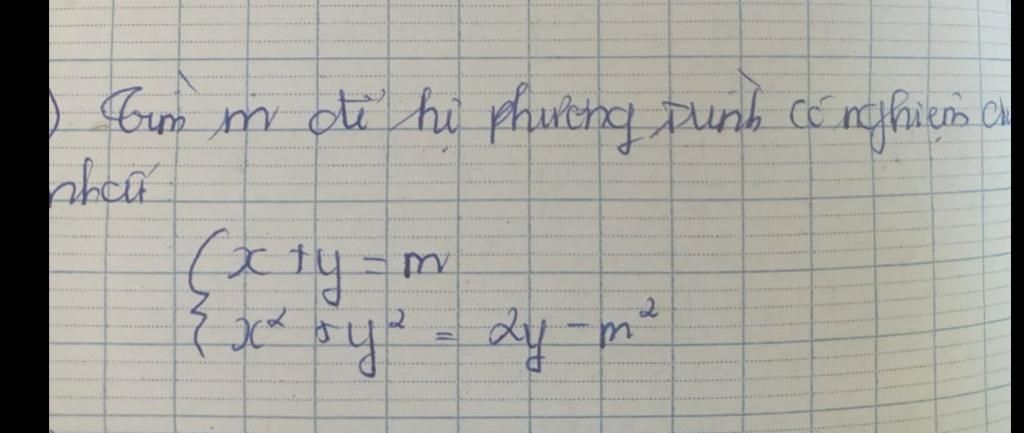 ) Tìm m để hệ phương trình có nghiệm
nhất
x + y = m
x² + y² = 2y - m²